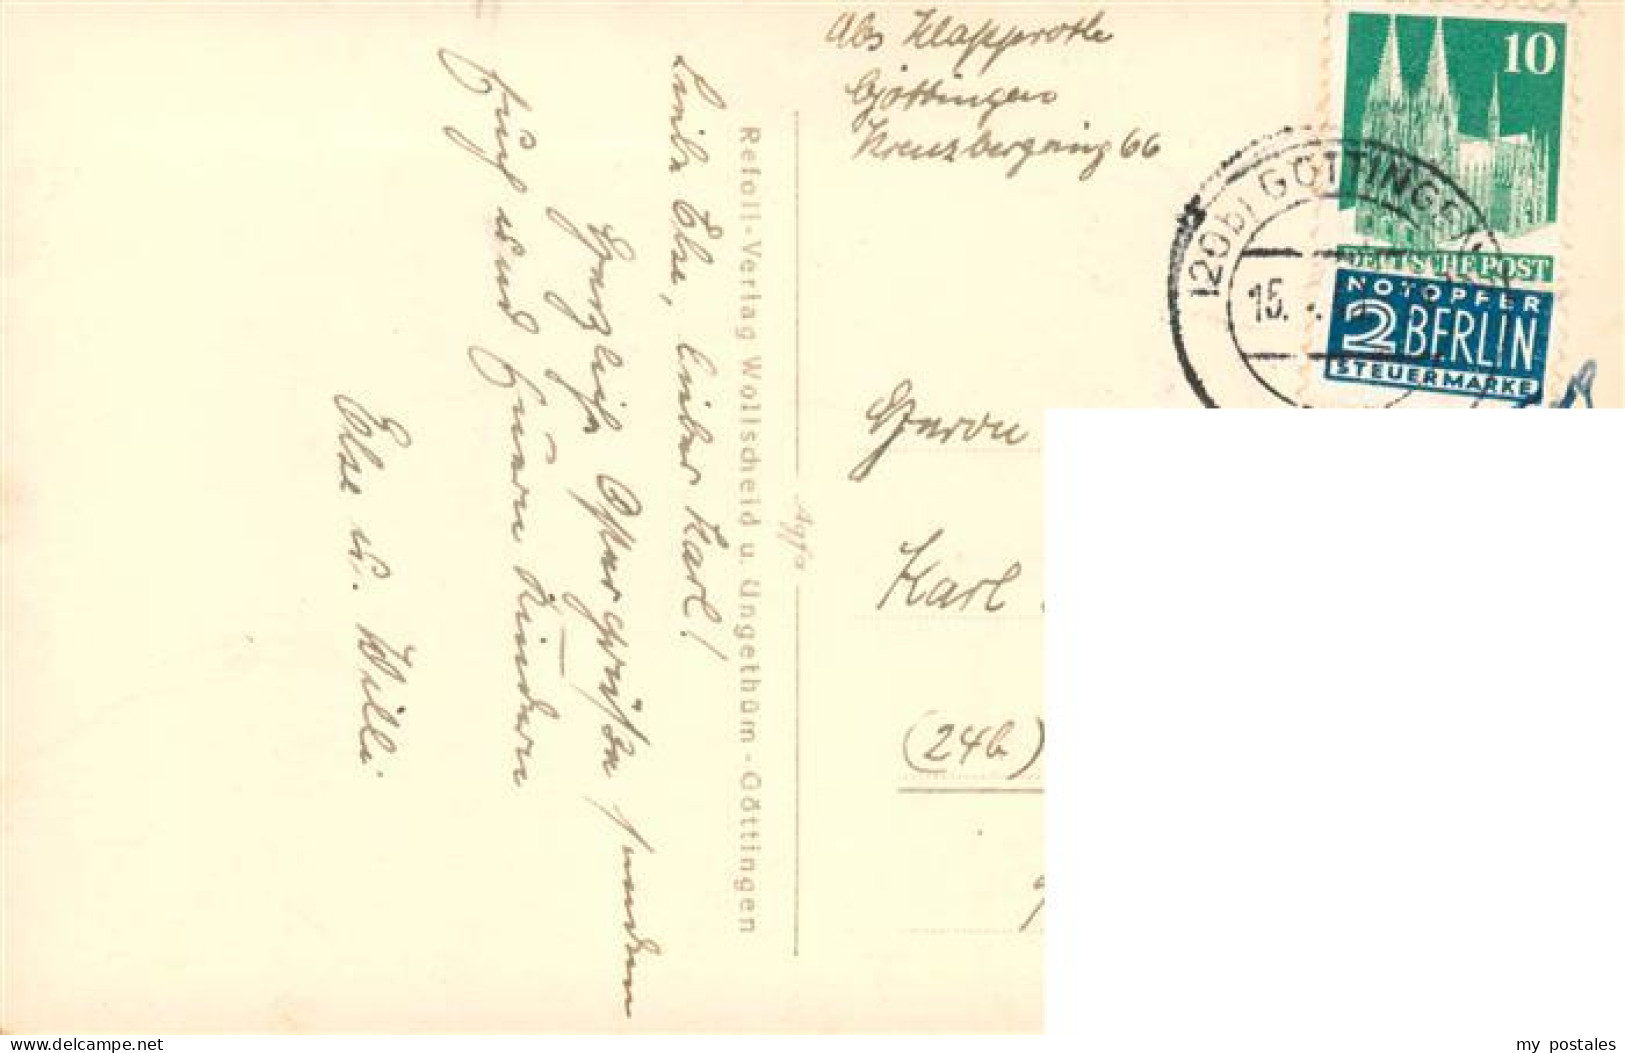 Liebe Else, lieber Karl!
Herzliche Ostergrüße senden
Euch und Euren Kindern
Else u. Willi
Refoli-Verlag Wollscheid u. Ungethüm - Göttingen
Agfa
Abs Klapproth
Göttingen
Kreuzbergring 66
10
DEUTSCHE POST
NOTOPFER
2 BERLIN
STEUERMARKE
(20b) GÖTTINGEN
15.
Herrn
Karl
(24b)
www.delcampe.net
my_postales